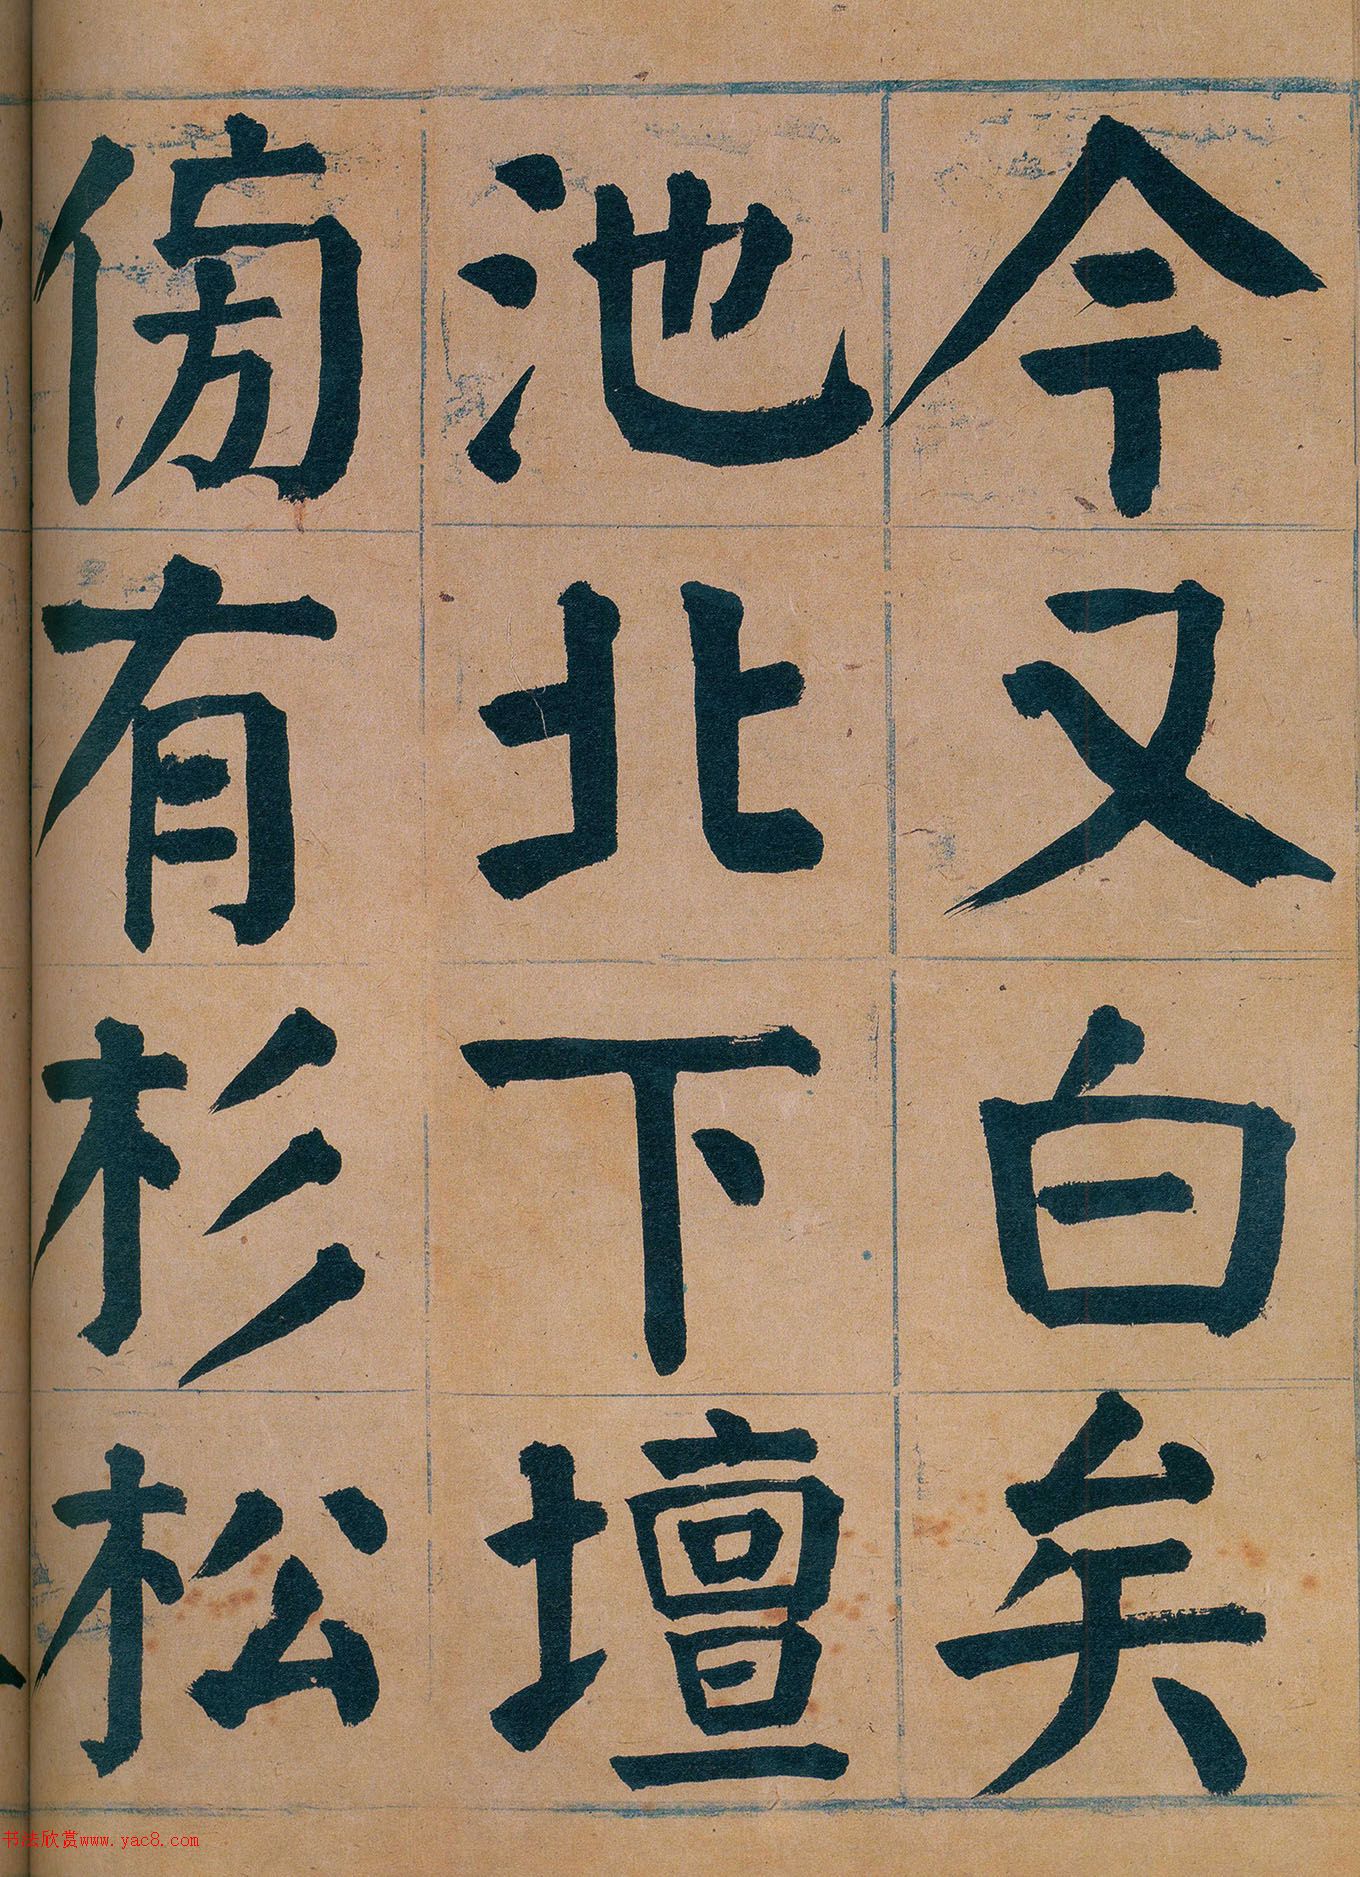 今又白矣
池北下壇
傍有杉松
书法欣赏www.yac8.com